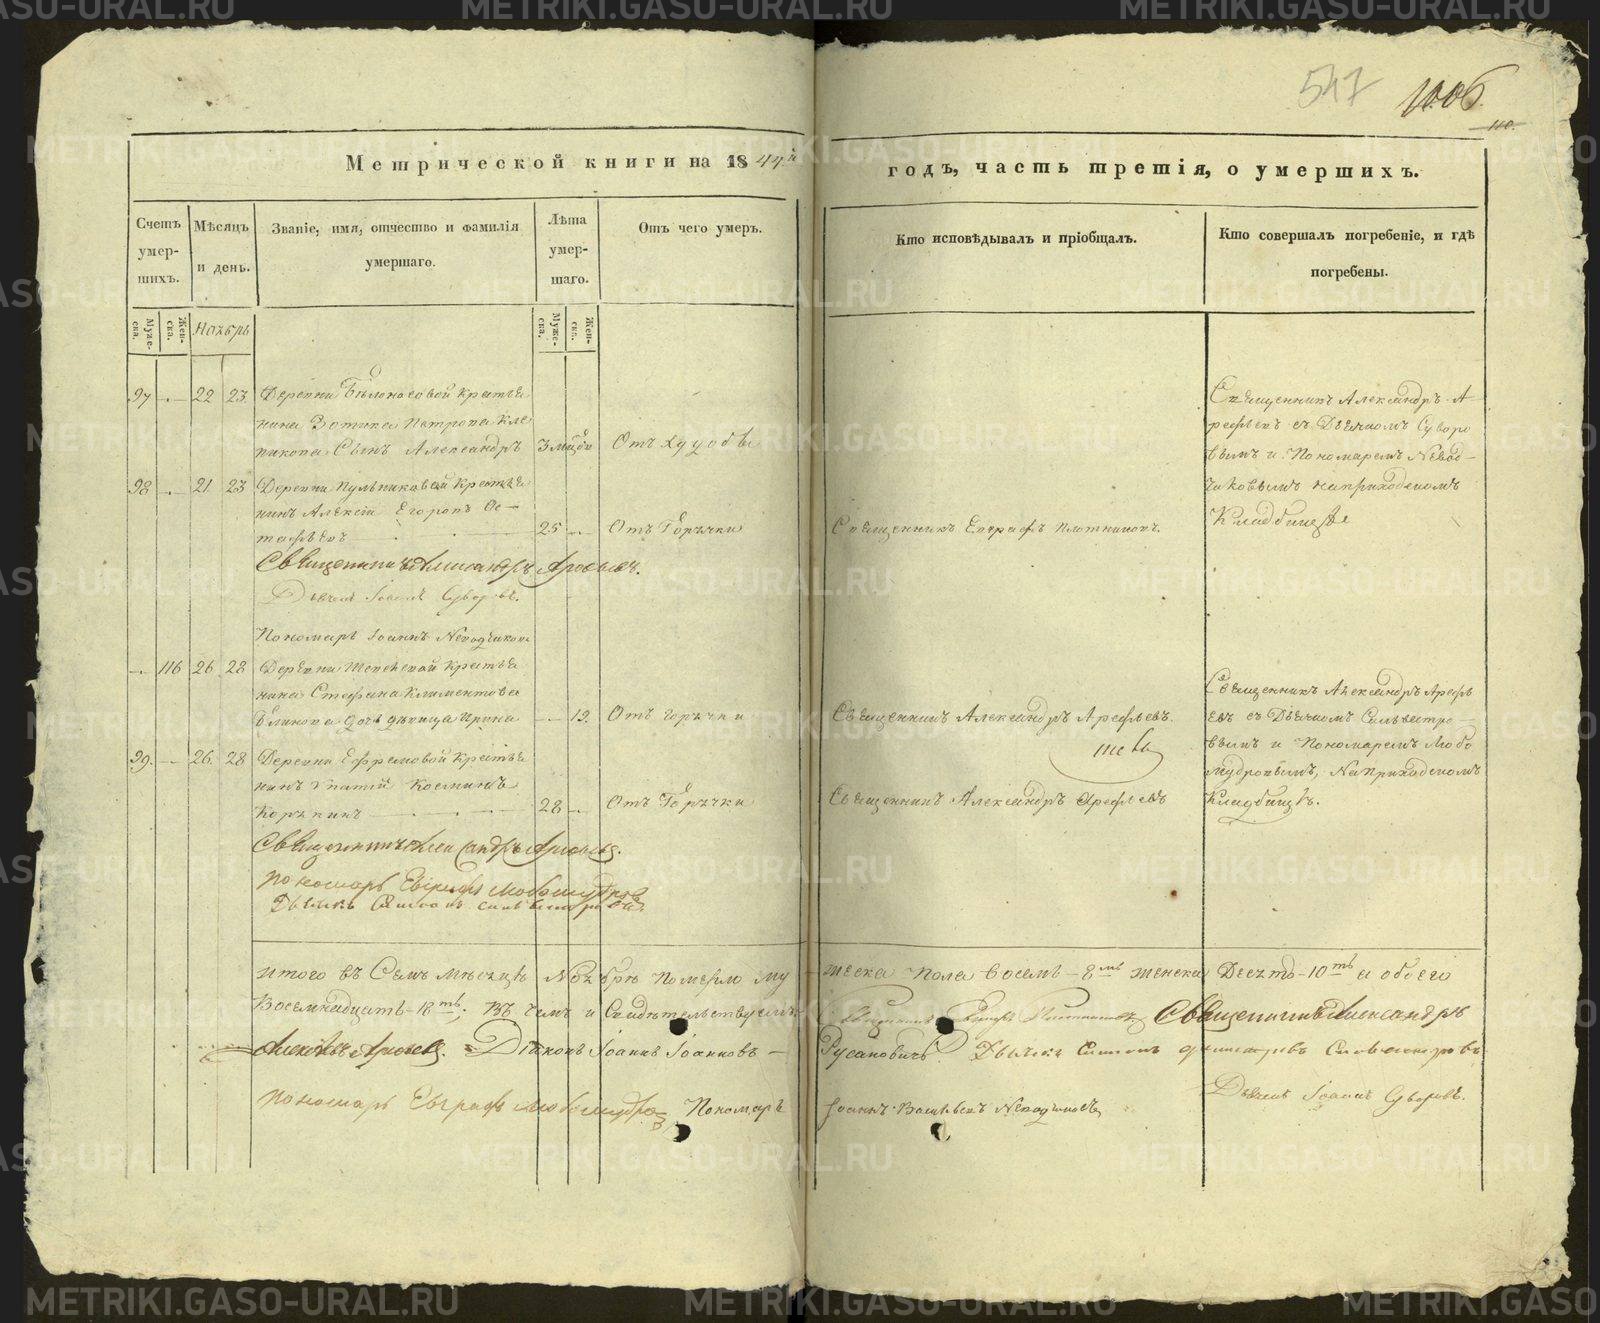 547 1006.
110.
Метрической книги на 1844й годъ, часть третія, о умершихъ.
Счетъ умер-шихъ.
Мѣсяцъ и день.
Званіе, имя, отчество и фамилія умершаго.
Лѣта умер-шаго.
Отъ чего умеръ.
Кто исповѣдывалъ и пріобщалъ.
Кто совершалъ погребеніе, и гдѣ погребены.
Муже-ска.
Жен-ска.
Ноябрь
Муже-ска.
Жен-ска.
97 — 22 23. Деревни Бѣлоносовой крестья
нина Зотика Петрова Кле
пикова Сынъ Александръ
Отъ худобы
Священникъ Александръ А
рефьевъ съ Дьячкомъ Суворо
вымъ и Пономаремъ
наприходскомъ
Кладбище
98 — 21 23 Деревни Пульниковой Крестья
нинъ Алексѣй Егоровъ Ос—
тафьевъ — 25 — Отъ Горячки
Священникъ Евграфъ Плотниковъ.
Священникъ Александръ Арефьевъ.
Дьячекъ Іоаннъ Суворовъ.
Пономарь Іоаннъ
— 116 26 28 Деревни Крестья
нина Стефана Климентова
Блинова дочь дѣвица Ирина — 19. Отъ горячки
Священникъ Александръ Арефьевъ.
Священникъ Александръ Арефь
евъ съ Дьячкомъ Сильвестро—
вымъ и Пономаремъ Любо
мудровымъ, Наприходскомъ
Кладбищѣ.
99. — 26. 28 Деревни Ефремовой Крестья
нинъ Ипатій Косминъ
Корякинъ — 28 — Отъ Горячки
Священникъ Александръ Арефьевъ
Священникъ Александръ Арефьевъ.
Пономарь Евграфъ Любомудровъ
Дьячекъ Симеонъ Сильвестровъ
Итого въ Семъ мѣсяцѣ Ноябрѣ померло му
жеска пола восемь—8мь женска Десять—10ть а обоего
Восемнадцать—18ть; Въ чемъ и Свидѣтельствуемъ:
Священникъ Евграфъ Плотниковъ Священникъ Александръ
Алексѣевъ Арефьевъ. Діаконъ Іоаннъ Іоанновъ —
Русановичъ. Дьячекъ Симеонъ Сильвестровъ
Дьячекъ Іоаннъ Суворовъ.
Пономарь Евграфъ Любомудровъ Пономарь
Іоаннъ Васильевъ
METRIKI.GASO-URAL.RU